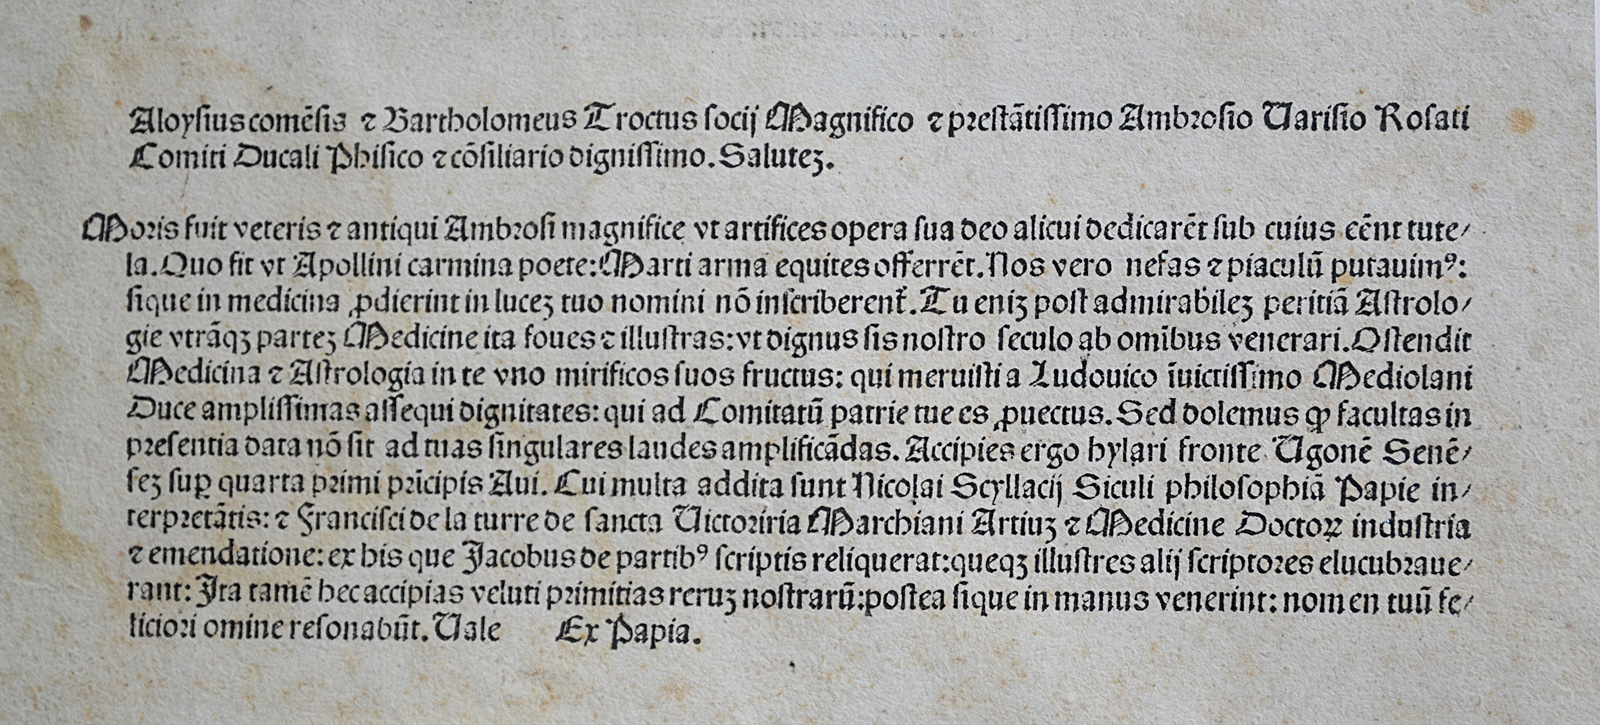 Aloysius comēsis ⁊ Bartholomeus Troctus socij Magnifico ⁊ prestātissimo Ambrosio Varisio Rosati
Comiti Ducali Phisico ⁊ cōsiliario dignissimo. Saluteꝫ.
Moris fuit veteris ⁊ antiqui Ambrosi magnifice vt artifices opera sua deo alicui dedicarēt sub cuius eēnt tute/
la. Quo fit vt Apollini carmina poete: Marti arma equites offerrēt. Nos vero nefas ⁊ piaculū putauimꝰ:
sique in medicina ꝓdierint in luceꝫ tuo nomini nō inscriberent̄. Tu eniꝫ post admirabileꝫ peritiā Astrolo/
gie vtrāqꝫ parteꝫ Medicine ita foues ⁊ illustras: vt dignus sis nostro seculo ab omībus venerari. Ostendit
Medicina ⁊ Astrologia in te vno mirificos suos fructus: qui meruisti a Ludouico īuictissimo Mediolani
Duce amplissimas assequi dignitates: qui ad Comitatū patrie tue es ꝓuectus. Sed dolemus ꝙ facultas in
presentia data nō sit ad tuas singulares laudes amplificādas. Accipies ergo hylari fronte Ugonē Senē/
seꝫ suꝑ quarta primi prīcipis Aui. Cui multa addita sunt Nicolai Scyllacij Siculi philosophiā Papie in/
terpretātis: ⁊ Francisci de la turre de sancta Victoriria Marchiani Artiuꝫ ⁊ Medicine Doctoꝝ industria
⁊ emendatione: ex his que Jacobus de partibꝰ scriptis reliquerat: queqꝫ illustres alij scriptores elucubraue/
rant: Ita tamē hec accipias veluti primitias reruꝫ nostrarū: postea sique in manus venerint: nomen tuū fe/
liciori omine resonabūt. Vale Ex Papia.